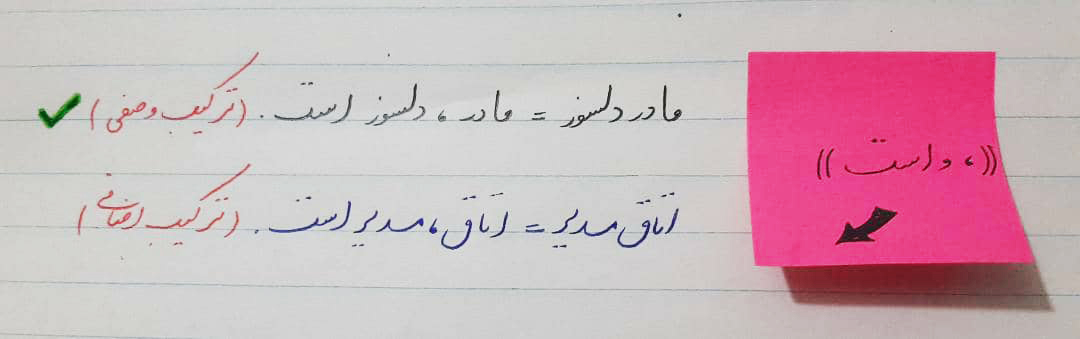 مادر دلسوز = مادر ، دلسوز است . (ترکیب وصفی)
(( ، و است ))
اتاق مدیر = اتاق ، مدیر است . (ترکیب اضافی)